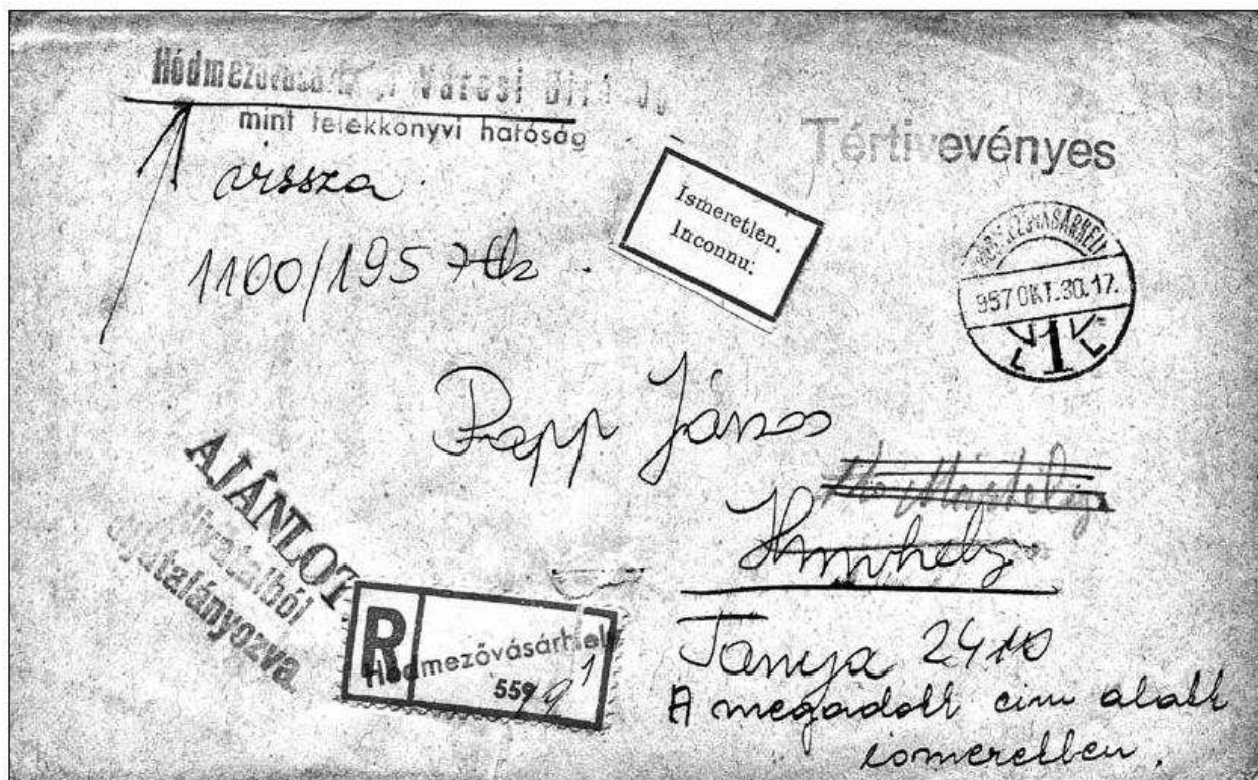 Hódmezővásárhelyi Városi Bíróság
mint telekkönyvi hatóság
vissza
1100/1957 tk
Ismeretlen.
Inconnu.
Tértivevényes
957 OKT.30.17.
Papp János
Hmvhely
Tanya 2410
A megadott cim alatt
ismeretlen.
AJÁNLOTT
Hivatalból
díjátalányozva
R
Hódmezővásárhely 1
559